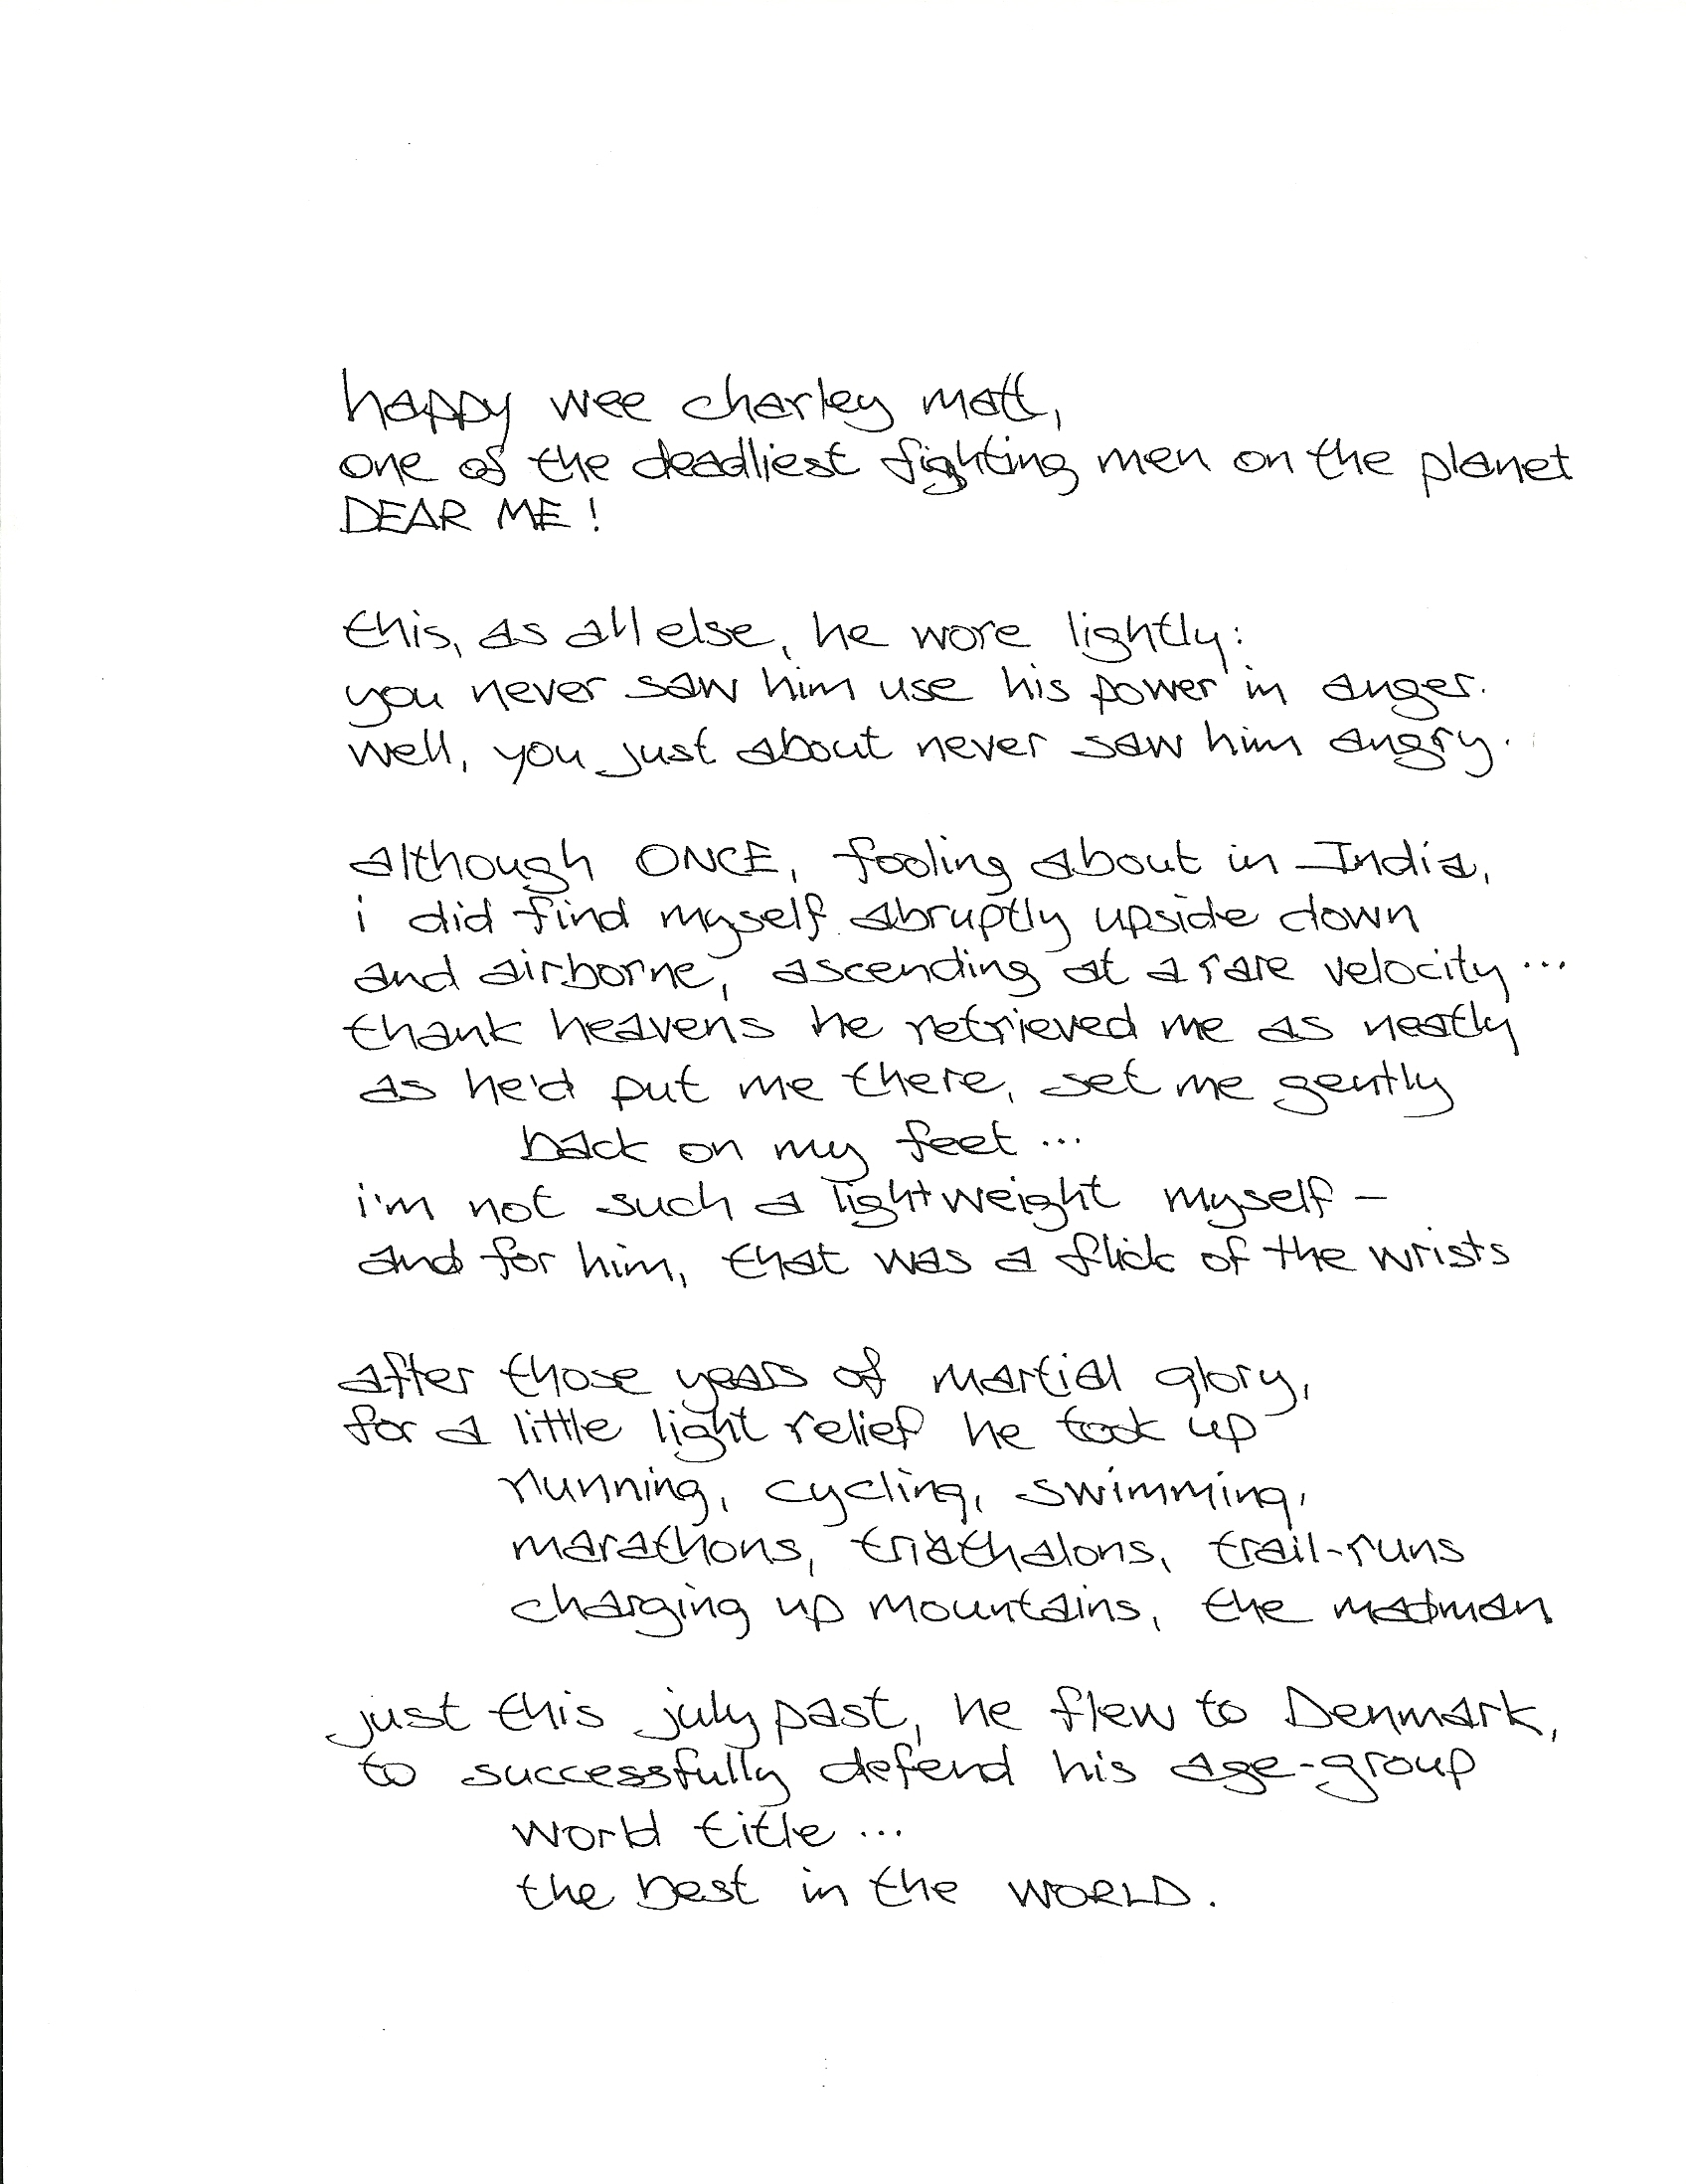 happy wee charley matt,
one of the deadliest fighting men on the planet
DEAR ME!
this, as all else, he wore lightly:
you never saw him use his power in anger.
well, you just about never saw him angry.
although ONCE, fooling about in India,
i did find myself abruptly upside down
and airborne, ascending at a rare velocity...
thank heavens he retrieved me as neatly
as he'd put me there, set me gently
back on my feet...
i'm not such a lightweight myself –
and for him, that was a flick of the wrists
after those years of martial glory,
for a little light relief he took up
running, cycling, swimming,
marathons, triathalons, trail-runs
charging up mountains, the madman
just this july past, he flew to Denmark,
to successfully defend his age-group
world title...
the best in the WORLD.